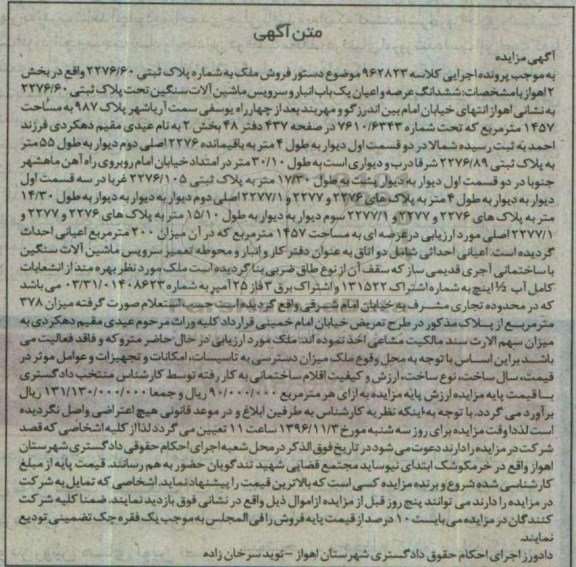 متن آگهی
آگهی مزایده
به موجب پرونده اجرایی کلاسه ۹۶۲۸۲۳ موضوع دستور فروش ملک به شماره پلاک ثبتی ۲۲۷۶/۶۰ واقع در بخش
۲ اهواز با مشخصات: ششدانگ عرصه و اعیان یک باب انبار و سرویس ماشین آلات سنگین تحت پلاک ثبتی ۲۲۷۶/۶۰
به نشانی اهواز انتهای خیابان امام بین اندرزگو و مهر بند بعد از چهارراه یوسفی سمت آریاشهر پلاک ۹۸۷ به مساحت
۱۴۵۷ مترمربع که تحت شماره ۷۶۱۰/۶۳۴۳ در صفحه ۴۳۷ دفتر ۴۸ بخش ۲ به نام عیدی مقیم دهکردی فرزند
احمد به ثبت رسیده شمالا در دو قسمت اول دیوار به طول ۴ متر به باقیمانده ۲۲۷۶ اصلی دوم دیوار به طول ۵۵ متر
به پلاک ثبتی ۲۲۷۶/۸۹ شرقا درب و دیواری است به طول ۳۰/۱۰ متر در امتداد خیابان امام روبروی راه آهن ماهشهر
جنوبا در دو قسمت اول دیوار به دیوار پشت به طول ۱۷/۳۰ متر به پلاک ثبتی ۲۲۷۶/۱۰۵ غربا در سه قسمت اول
دیوار به دیوار به طول ۴ متر به پلاک های ۲۲۷۶ و ۲۲۷۷ و ۲۲۷۷/۱ اصلی دوم دیوار به دیوار به دیوار به طول ۱۴/۳۰
متر به پلاک های ۲۲۷۶ و ۲۲۷۷ و ۲۲۷۷/۱ سوم دیوار به دیوار به طول ۱۵/۱۰ متر به پلاک های ۲۲۷۶ و ۲۲۷۷ و
۲۲۷۷/۱ اصلی مورد ارزیابی در عرصه ای به مساحت ۱۴۵۷ مترمربع که در آن میزان ۲۰۰ مترمربع اعیانی احداث
گردیده است. اعیانی احداثی شامل دو اتاق به عنوان دفتر کار و انبار و محوطه تعمیر سرویس ماشین آلات سنگین
با ساختمانی آجری قدیمی ساز که سقف آن از نوع طاق ضربی بنا گردیده است ملک مورد نظر بهره مند از انشعابات
کامل آب ½ اینچ به شماره اشتراک ۱۳۱۵۲۲ و اشتراک برق ۳ فاز ۲۵ آمپر به شماره ۰۳/۳۱/۰۱۴۰۸۶۲۳ می باشد
که در محدوده تجاری مشرف به خیابان امام شرقی واقع گردیده است حسب استعلام صورت گرفته میزان ۳۷۸
مترمربع از پلاک مذکور در طرح تعریض خیابان امام خمینی قرار داد کلیه وراث مرحوم عیدی مقیم دهکردی به
میزان سهم الارث سند مالکیت مشاعی اخذ نموده اند. ملک مورد ارزیابی در حال حاضر متروکه و فاقد فعالیت می
باشد. بر این اساس با توجه به محل وقوع ملک میزان دسترسی به تاسیسات، امکانات و تجهیزات و عوامل موثر در
قیمت، سال ساخت، نوع ساخت، ارزش و کیفیت اقلام ساختمانی به کار رفته توسط کارشناس منتخب دادگستری
با قیمت پایه مزایده ارزش پایه مزایده به ازای هر مترمربع ۹۰/۰۰۰/۰۰۰ ریال و جمعا ۱۳۱/۱۳۰/۰۰۰/۰۰۰ ریال
برآورد می گردد. با توجه به اینکه نظریه کارشناس به طرفین ابلاغ و در موعد قانونی هیچ اعتراضی واصل نگردیده
است لذا وقت مزایده برای روز سه شنبه مورخ ۱۳۹۶/۱۱/۳ ساعت ۱۱ تعیین می گردد لذا از کلیه اشخاصی که قصد
شرکت در مزایده را دارند دعوت می شود در تاریخ فوق الذکر در محل شعبه اجرای احکام حقوقی دادگستری شهرستان
اهواز واقع در خرمکوشک ابتدای نیوساید مجتمع قضایی شهید تندگویان حضور به هم رسانند. قیمت پایه از مبلغ
کارشناسی شده شروع و برنده مزایده کسی است که بالاترین قیمت را پیشنهاد نماید. اشخاصی که تمایل به شرکت
در مزایده را دارند می توانند پنج روز قبل از مزایده از اموال ذیل واقع در نشانی فوق بازدید نمایند. ضمنا کلیه شرکت
کنندگان در مزایده می بایست ۱۰ درصد از قیمت پایه فروش را فی المجلس به موجب یک فقره چک تضمینی تودیع
نمایند.
دادورز اجرای احکام حقوق دادگستری شهرستان اهواز – نوید سرخان زاده